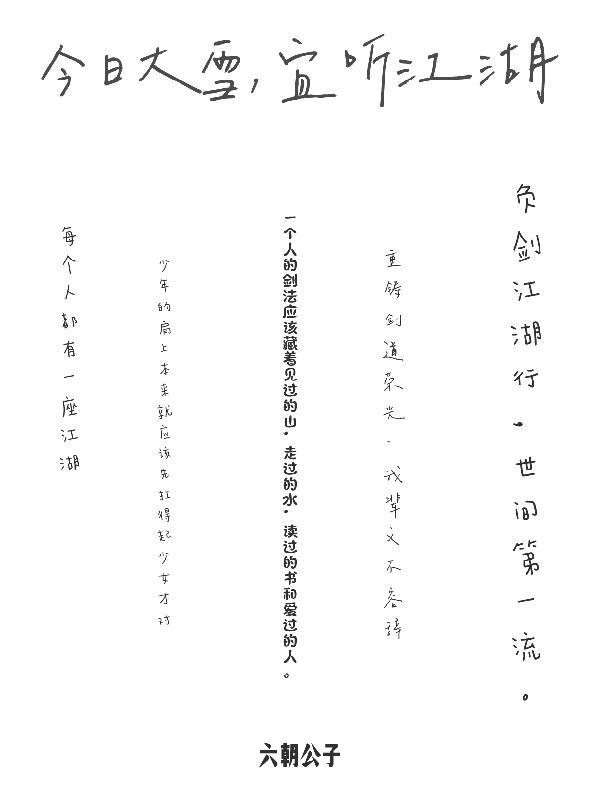 今日大雪，宜听江湖
负剑江湖行。世间第一流。
重铸剑道荣光、我辈义不容辞
一个人的剑法应该藏着见过的山，走过的水，读过的书和爱过的人。
少年的肩上本来就应该先扛得起少女才对
每个人都有一座江湖
六朝公子